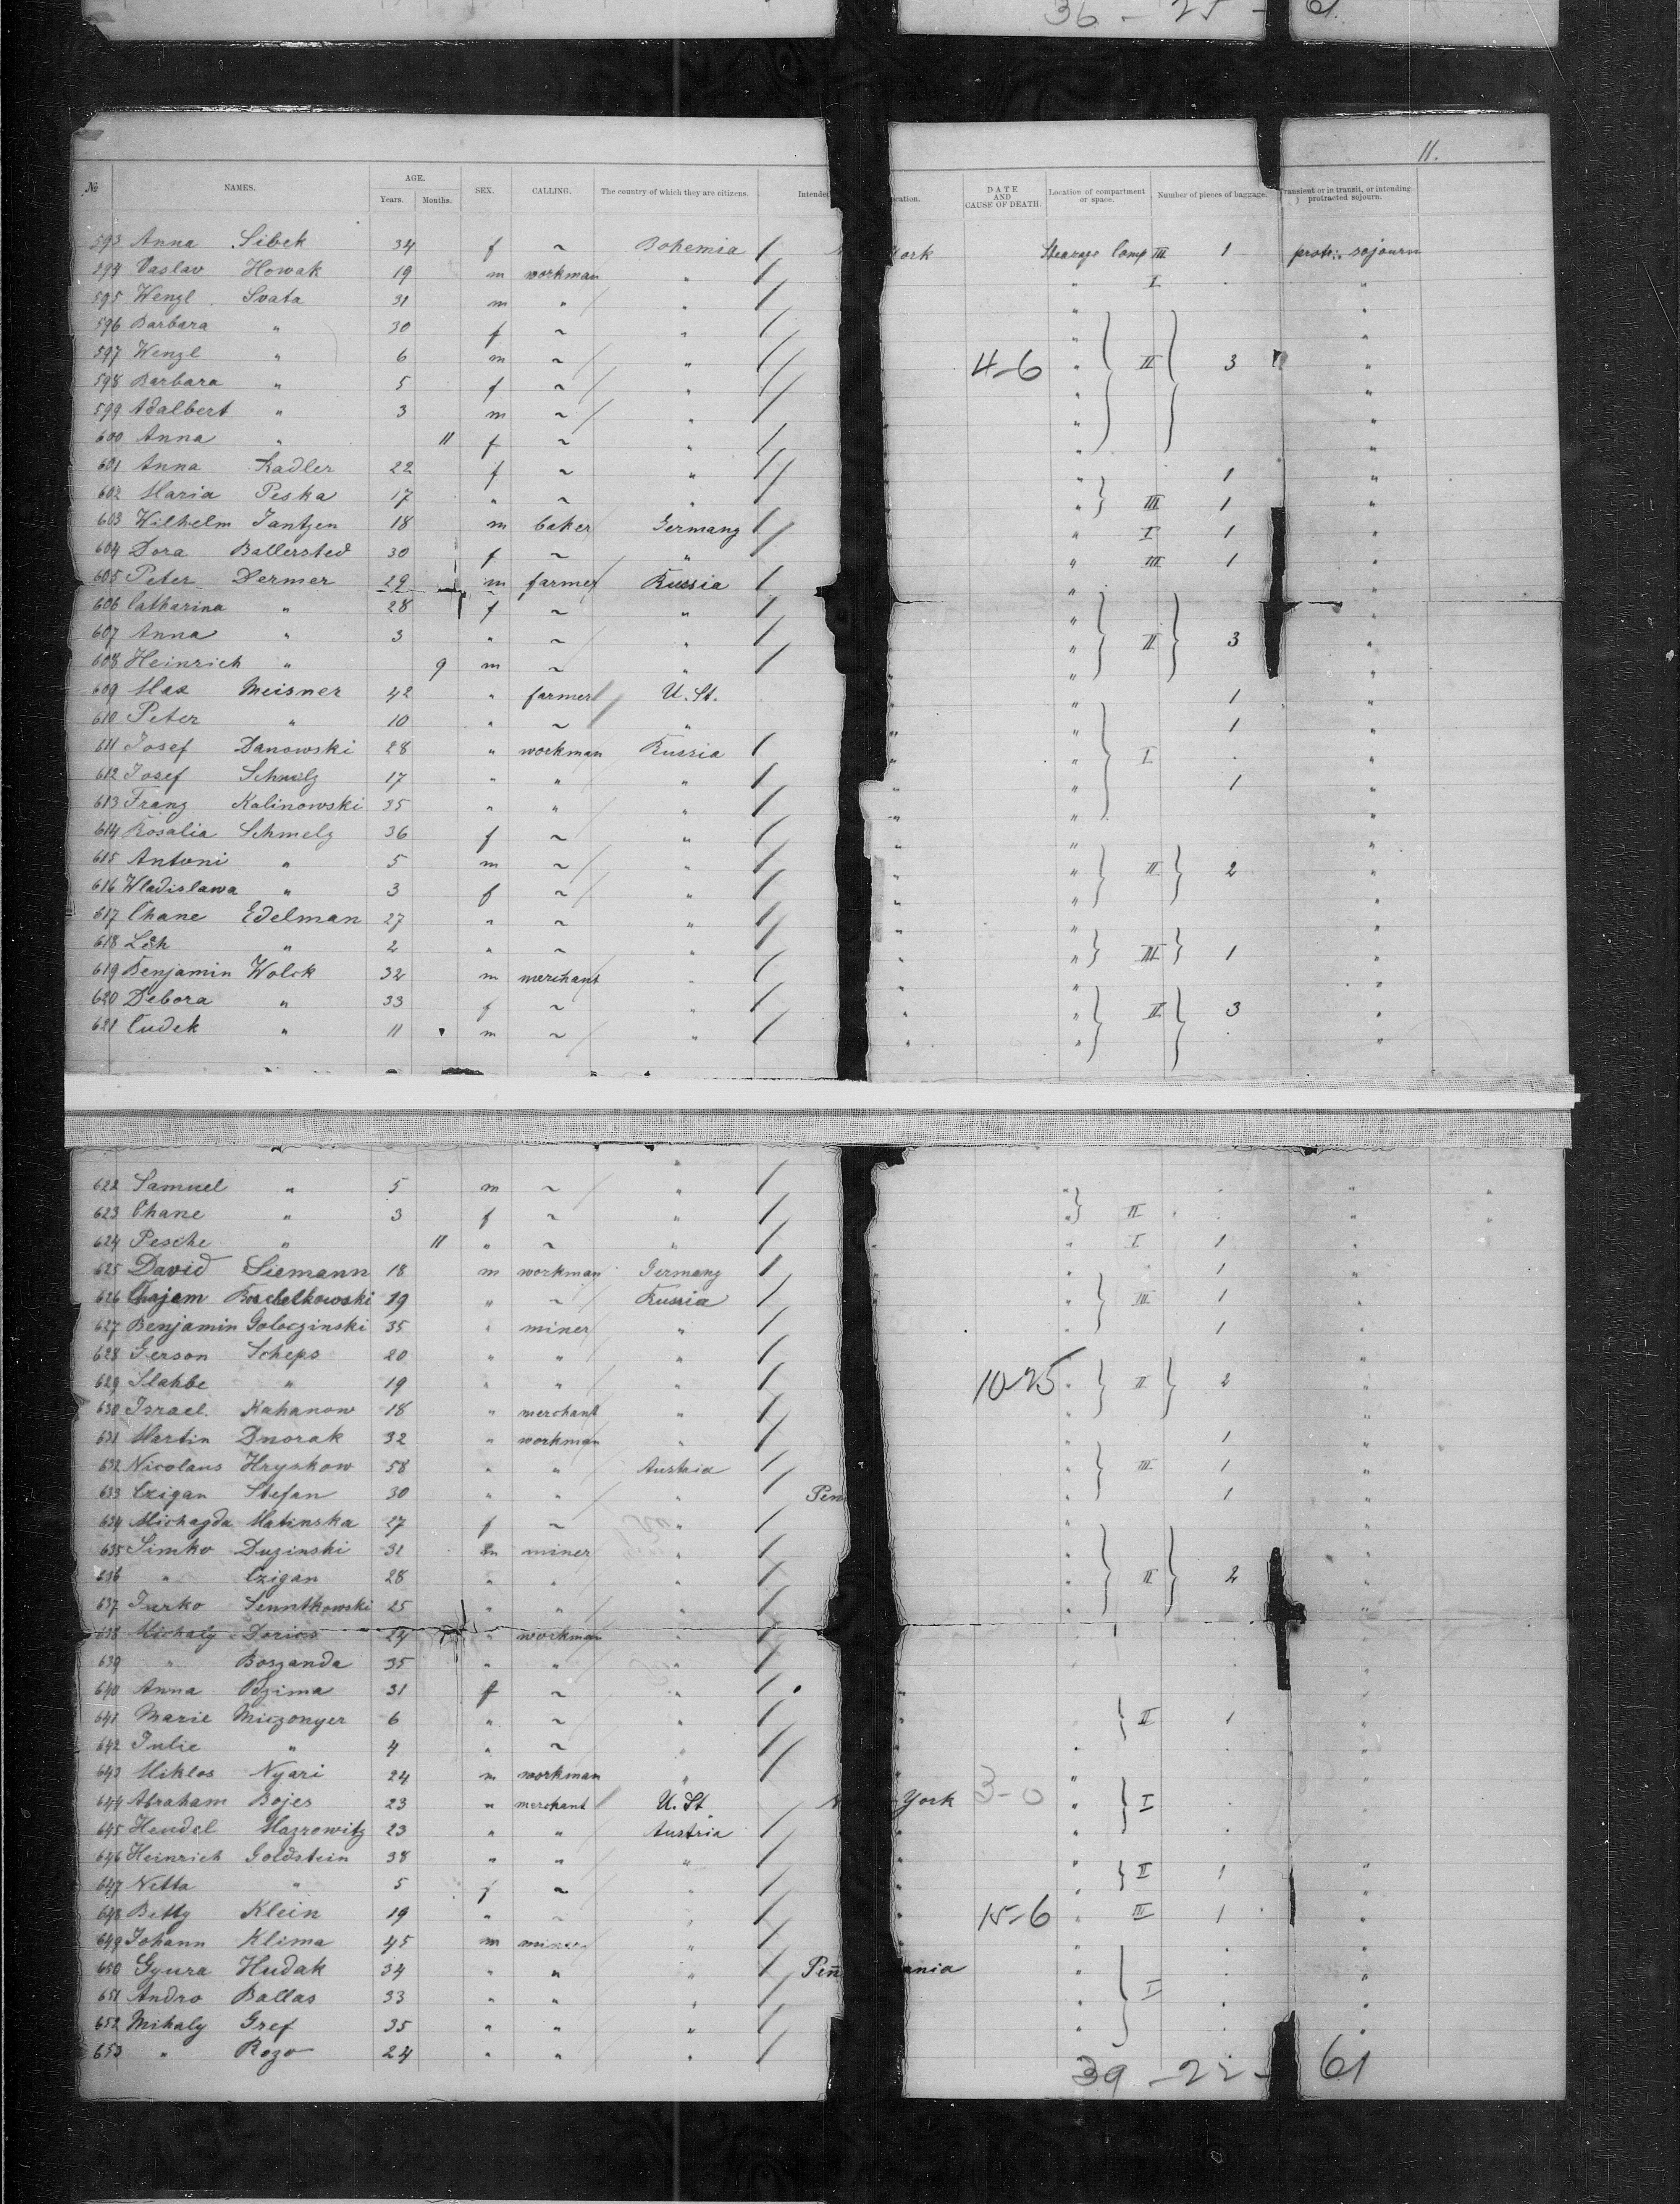 36 - 25 - 61
11.
№ NAMES. AGE. Years. Months. SEX. CALLING. The country of which they are citizens. Intended cation. DATE AND CAUSE OF DEATH. Location of compartment or space. Number of pieces of baggage. Transient or in transit, or intending protracted sojourn.
593 Anna Sibek 34 f ~ Bohemia / ork Stearage Comp III 1 protr. sojourn
594 Vaslav Howak 19 m workman " / " I . "
595 Wenzl Svata 31 m " " / " "
596 Barbara " 30 f ~ " / " "
597 Wenzl " 6 m ~ " / 4-6 " II 3 "
598 Barbara " 5 f ~ " / " "
599 Adalbert " 3 m ~ " / " "
600 Anna " 11 f ~ " / " "
601 Anna Kadler 22 f ~ " / " 1 "
602 Maria Peska 17 " ~ " / " III 1 "
603 Wilhelm Jantzen 18 m baker Germany / " I 1 "
604 Dora Ballersted 30 f ~ " / " III 1 "
605 Peter Dermer 29 m farmer Russia / " "
606 Catharina " 28 f ~ " / " "
607 Anna " 3 " ~ " / " II 3 "
608 Heinrich " 9 m ~ " / " "
609 Max Meisner 42 " farmer U. St. " 1 "
610 Peter " 10 " ~ " " " 1 "
611 Josef Danowski 28 " workman Russia / " " I . "
612 Josef Schmelz 17 " " " / " " 1 "
613 Franz Kalinowski 35 " " " / " " "
614 Rosalia Schmelz 36 f ~ " / " " "
615 Antoni " 5 m ~ " / " " II 2 "
616 Wladislawa " 3 f ~ " / " " "
617 Chane Edelman 27 " ~ " / " " "
618 Leh " 2 " ~ " / " " III 1 "
619 Benjamin Wolck 32 m merchant " / " " "
620 Debora " 33 f ~ " / " " II 3 "
621 Cudek " 11 m ~ " / " " "
622 Samuel " 5 m ~ " / " "
623 Chane " 3 f ~ " / " II "
624 Pesche " 11 " ~ " / " I 1 "
625 David Siemann 18 m workman Germany / " 1 "
626 Chajem 19 " ~ Russia / " III 1 "
627 Benjamin Goloczinski 35 " miner " / " 1 "
628 Gerson Scheps 20 " " " / "
629 Slahbe " 19 " " " / 10-25 " II 2 "
630 Israel Kahanow 18 " merchant " / " "
631 Martin Dnorak 32 " workman " / 1 "
632 Nicolaus Hryskow 58 " " Austria / " III 1 "
633 Czigan Stefan 30 " " " / Pen " 1 "
634 Michagda Matinska 27 f ~ " / " "
635 Simko Duzinski 31 m miner " / " "
636 " Czigan 28 " " " / " II 2 "
637 Jurko Senntkowski 25 " " " / " "
638 Michaly Dorics 24 " workman " / "
639 " Boszanda 35 " " " / "
640 Anna 31 f ~ " / " "
641 Marie Miczonyer 6 " ~ " / " II 1 "
642 Julie " 4 " ~ " / " " "
643 Miklos Nyari 24 m workman " / " "
644 Abraham Bojer 23 " merchant U. St. N York 3-0 " I . "
645 Hendel Mazrowitz 23 " " Austria / " " "
646 Heinrich Goldstein 38 " " " / " " II 1 "
647 Netta " 5 f ~ " / " " "
648 Betty Klein 19 " ~ " / " 15-6 " III 1 "
649 Johann Klima 45 m miner " / " "
650 Gyura Hudak 34 " " " / Pen ania " I . "
651 Andro Ballas 33 " " " / " "
652 Mihaly Gref 35 " " " / " "
653 " Rozo 24 " " " /
39 - 22 - 61